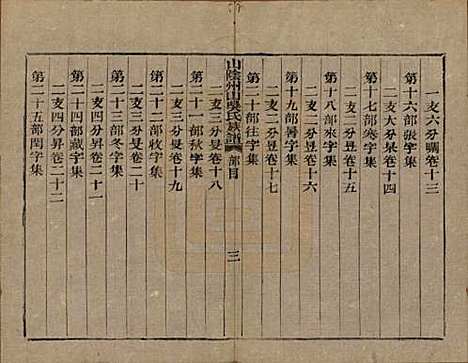 一支六分曯卷十三
第十六部張字集
二支大分杲卷十四
第十七部寒字集
二支二分昱卷十五
第十八部來字集
二支二分昱卷十六
第十九部暑字集
二支二分昱卷十七
第二十部往字集
山陰州山吳氏族譜
部目
三
二支三分旻卷十八
第二十一部秋字集
二支三分旻卷十九
第二十二部收字集
二支三分旻卷二十
第二十三部冬字集
二支四分昇卷二十一
第二十四部藏字集
二支四分昇卷二十二
第二十五部閏字集